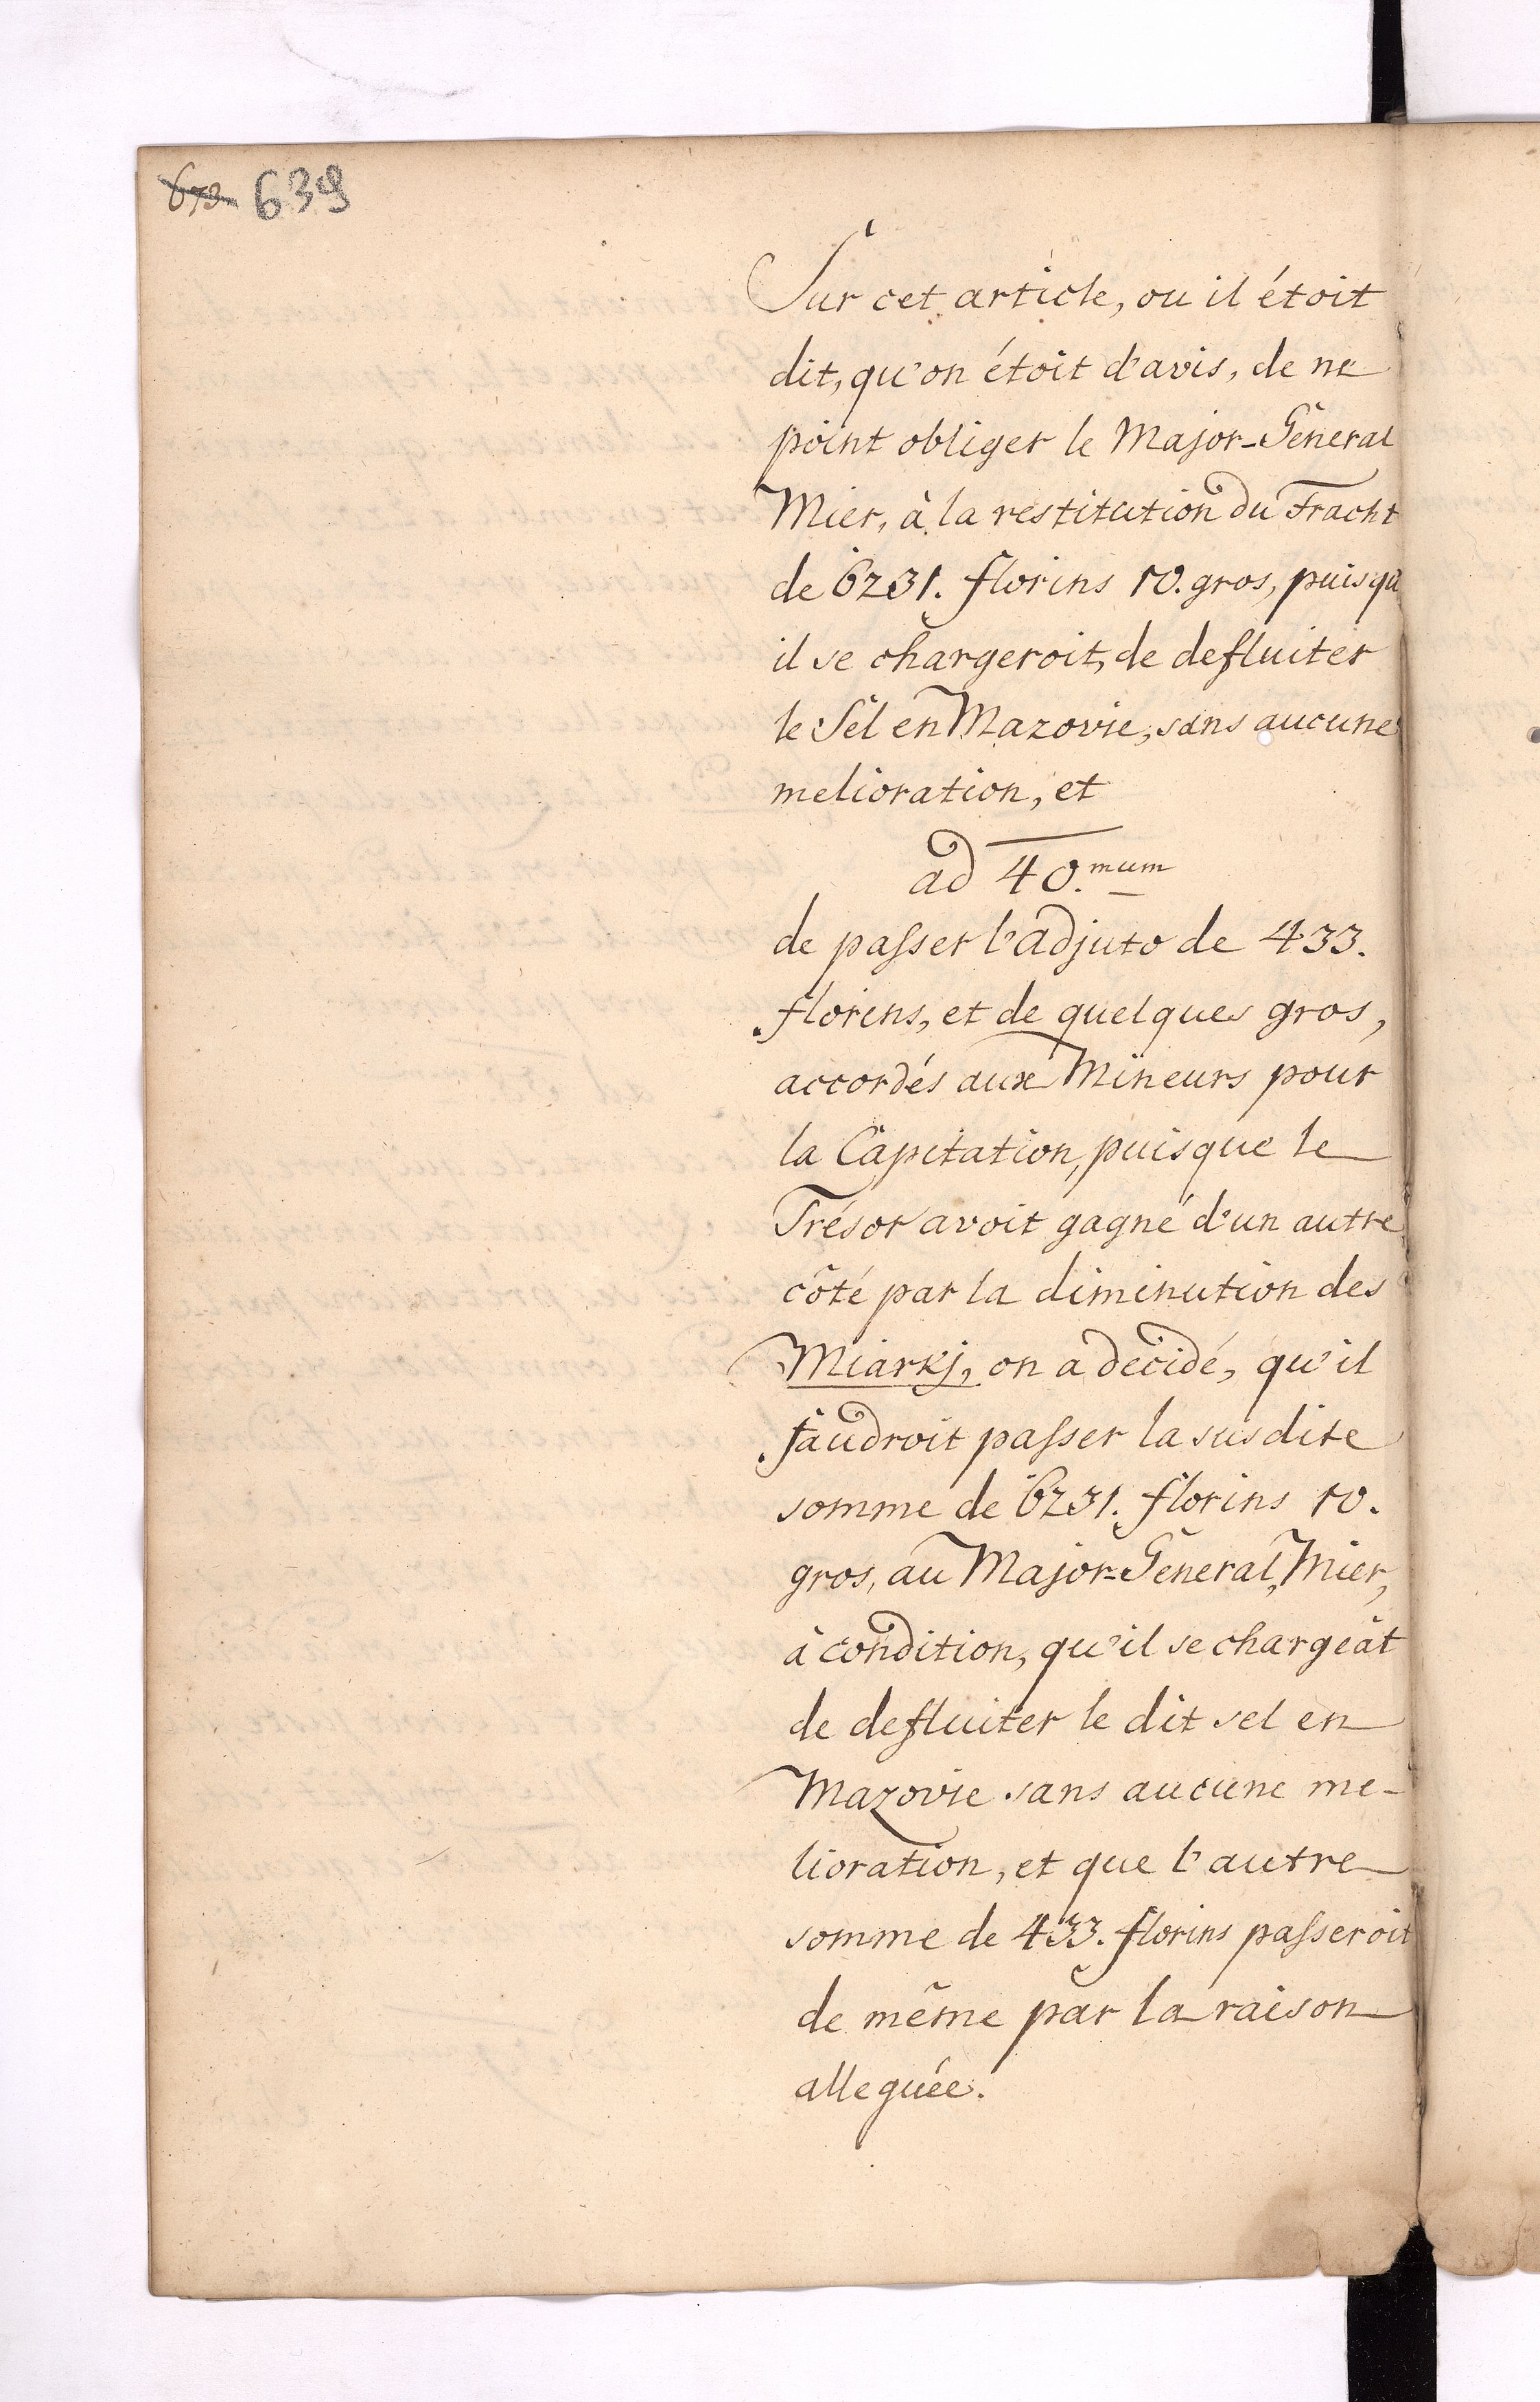 639
Sur cet article, ou il étoit
dit, qu'on étoit d'avis, de ne
point obliger le Major-General
Mier, à la restitution du Fracht
de 6231. florins 10. gros, puisqu
il se chargeroit, de defluiter
le Sel en Mazovie, sans aucune
melioration, et
ad 40.mum
de passer l'adjuto de 433.
florins, et de quelques gros,
accordés aux Mineurs pour
la Capitation, puisque le
Trésor avoit gagné d'un autre
côté par la diminution des
Miarkj, on a decidé, qu'il
faudroit passer la susdite
somme de 6231. florins 10.
gros, au Major-General, Mier,
à condition, qu'il se chargeât
de defluiter le dit sel en
Mazovie sans aucune me-
lioration, et que l'autre
somme de 433. florins passeroit
de même par la raison
alleguée.